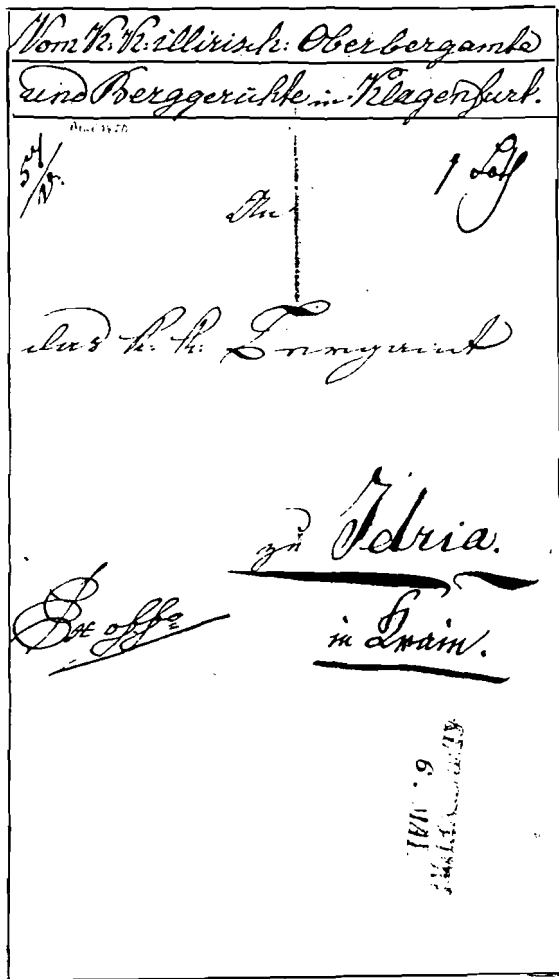 Vom K. K. illirisch: Oberbergamte
und Berggerichte in Klagenfurt.
5/V.
1 Loth
An
das k. k. Bergamt
zu Idria.
Ex offo
in Krain.
6. MAI.